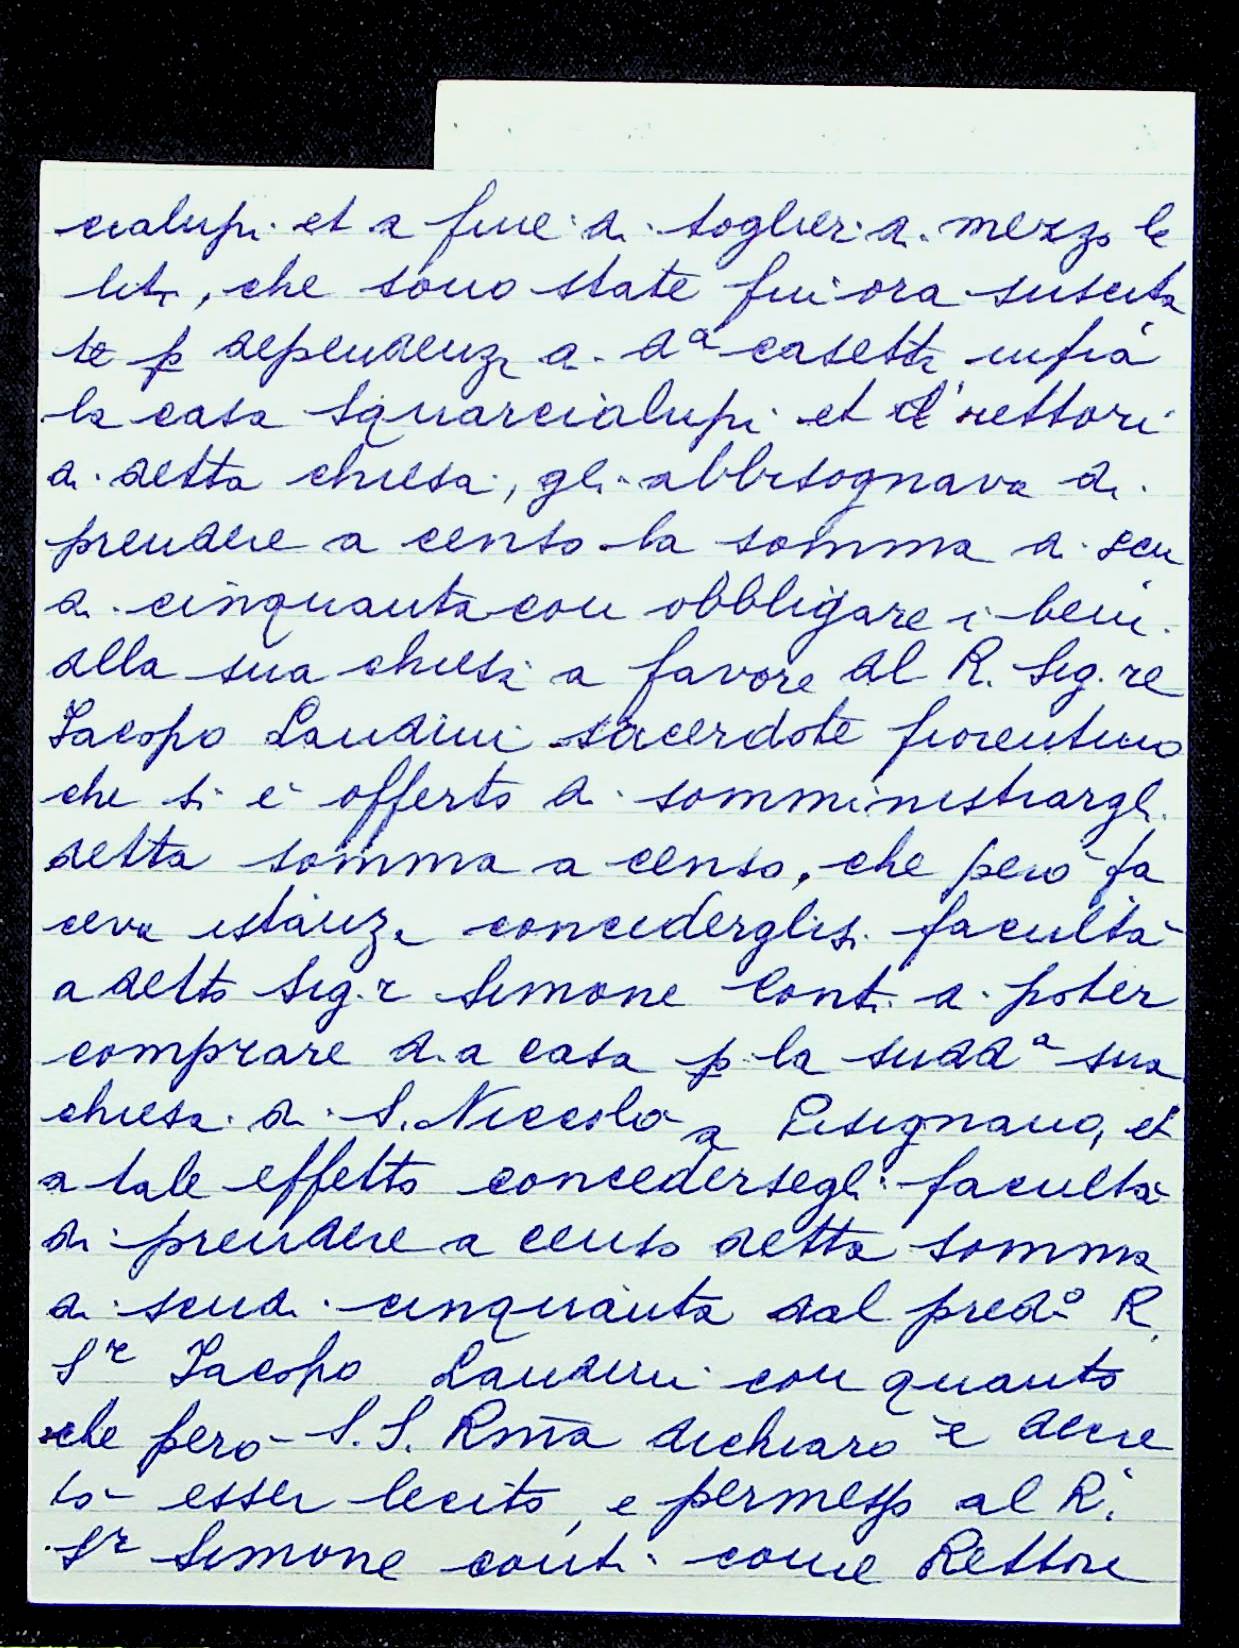 cialupi et a fine di toglier di mezzo le
liti, che sono state fin'ora suscita
te p dependenza di da casetta infrà
la casa Squarcialupi et i rettori
di detta chiesa, gli abbisognava di
prendere a censo la somma di scu
di cinquanta con obbligare i beni
della sua chiesa a favore del R. Sig.re
Jacopo Landini sacerdote fiorentino
che si è offerto di somministrargli
detta somma a censo, che però fa
ceva istanza concederglisi facultà
a detto Sig.r Simone Conti di poter
comprare d.a casa p la sudda sua
chiesa di S. Niccolò a Pisignano, et
a tale effetto concedersegli facultà
di prendere a censo detta somma
di scudi cinquanta dal predo R.
Sr Jacopo Landini con quanto
che però S.S. Rma dichiarò e decre
tò esser lecito, e permesso al R.
Sr Simone Conti come Rettore